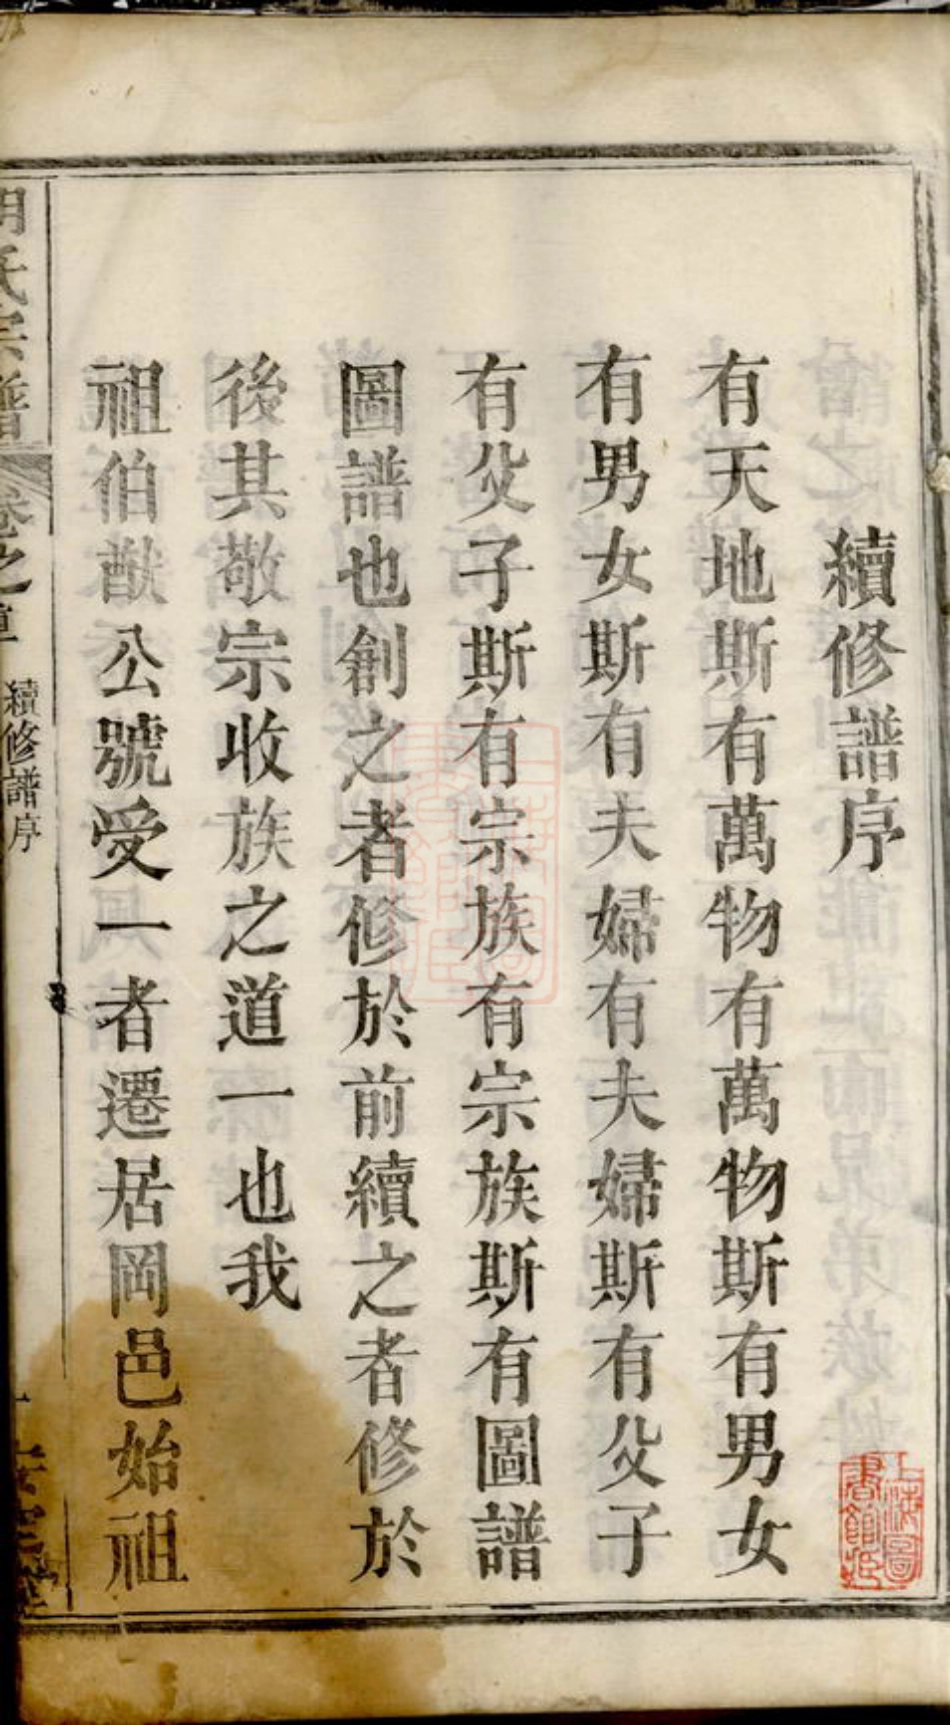 續修譜序
有天地斯有萬物有萬物斯有男女
有男女斯有夫婦有夫婦斯有父子
有父子斯有宗族有宗族斯有圖譜
圖譜也創之者修於前續之者修於
後其敬宗收族之道一也我
祖伯猷公號受一者遷居岡邑始祖
氏宗譜
卷之
續修譜序
上海圖書館藏